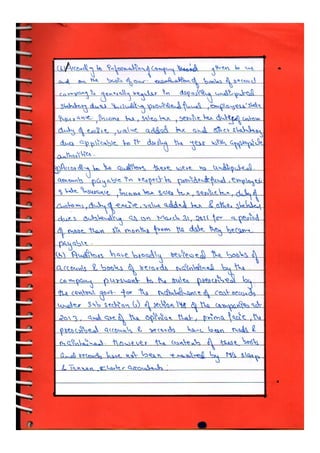 (a) According to Information of Company given to us
and on the basis of our examination of books of record
company is generally regular in depositing undisputed
statutory dues including provident fund, employees' state
Insurance, Income tax, sales tax, service tax, duty of custom
duty of excise, value added tax and other statutory
dues applicable to it during the year with appropriate
authorities.
According to the auditors there were no undisputed
amounts payable in respect to provident fund, employees
state Insurance, income tax sales tax, service tax, duty of
customs, duty of excise, value added tax & other statutory
dues outstanding as on March 31, for a period
of more than six months from the date they became
payable.
(b) Auditors have broadly reviewed the books of
accounts & books of records maintained by the
company pursuant to the rules prescribed by
the central govt for the maintenance of cost records
under sub section (1) of section 148 of the companies act
2013. and are of the opinion that, prima facie, the
prescribed accounts & records have been made &
maintained. However the contents of these books
and records have not been examined by M/s
& , Charter accountants.